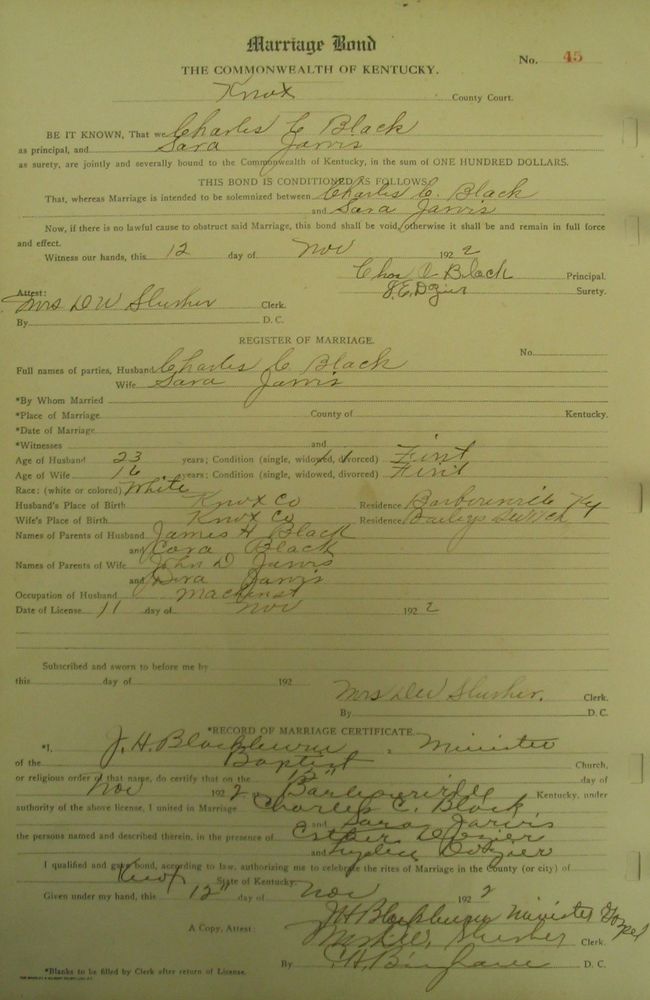 Marriage Bond
No. 45
THE COMMONWEALTH OF KENTUCKY.
Knox County Court.
BE IT KNOWN, That we Charles C Black
as principal, and Sara Jarvis
as surety, are jointly and severally bound to the Commonwealth of Kentucky, in the sum of ONE HUNDRED DOLLARS.
THIS BOND IS CONDITIONED AS FOLLOWS
That, whereas Marriage is intended to be solemnized between Charles C. Black
and Sara Jarvis
Now, if there is no lawful cause to obstruct said Marriage, this bond shall be void, otherwise it shall be and remain in full force
and effect.
Witness our hands, this 12 day of Nov 192 2
Chas C Black Principal.
J. E. Dozier Surety.
Attest:
Mrs D W Slusher Clerk.
By D. C.
REGISTER OF MARRIAGE.
No.
Full names of parties, Husband Charles C Black
Wife Sara Jarvis
*By Whom Married
*Place of Marriage County of Kentucky.
*Date of Marriage
*Witnesses and
Age of Husband 23 years; Condition (single, widowed, divorced) First
Age of Wife 16 years; Condition (single, widowed, divorced) First
Race: (white or colored) White
Husband's Place of Birth Knox Co Residence Barbourville Ky
Wife's Place of Birth Knox Co Residence Baileys Switch
Names of Parents of Husband James H Black
and Cora Black
Names of Parents of Wife John D Jarvis
and Dora Jarvis
Occupation of Husband Machinst
Date of License 11 day of Nov 192 2
Subscribed and sworn to before me by
this day of 192
Mrs D W Slusher. Clerk.
By D. C.
*RECORD OF MARRIAGE CERTIFICATE.
*I, J. H. Blackburn a Minister
of the Baptist Church,
or religious order of that name, do certify that on the 12" day of
Nov 192 2 Barbourville Kentucky, under
authority of the above license, I united in Marriage Charles C. Black
and Sara Jarvis
the persons named and described therein, in the presence of Esther Dozier
and Dozier
I qualified and gave bond, according to law, authorizing me to celebrate the rites of Marriage in the County (or city) of
Knox State of Kentucky.
Given under my hand, this 12" day of Nov 192 2
J H Blackburn Minister Gospel
A Copy, Attest: Slusher Clerk.
By Bingham D. C.
*Blanks to be filled by Clerk after return of License.